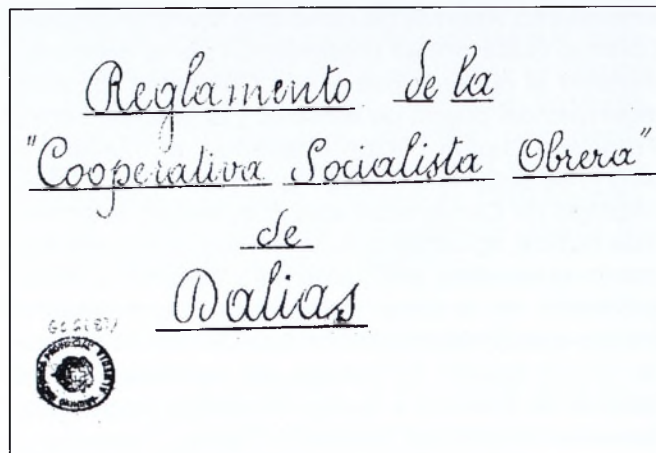 Reglamento de la
"Cooperativa Socialista Obrera"
de
Dalias